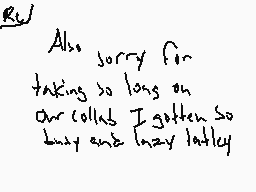 RW
Also
sorry for
taking so long on
our collab I gotten so
busy and lazy latley